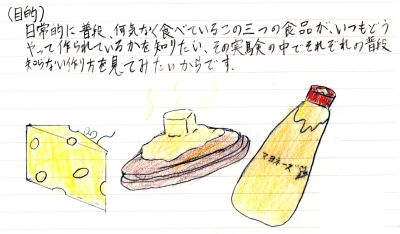 (目的)
日常的に普段、何気なく食べているこの三つの食品が、いつもどう
やって作られているかを知りたい、その実験の中でそれぞれの普段
知らない作り方を見てみたいからです。
マヨネーズ